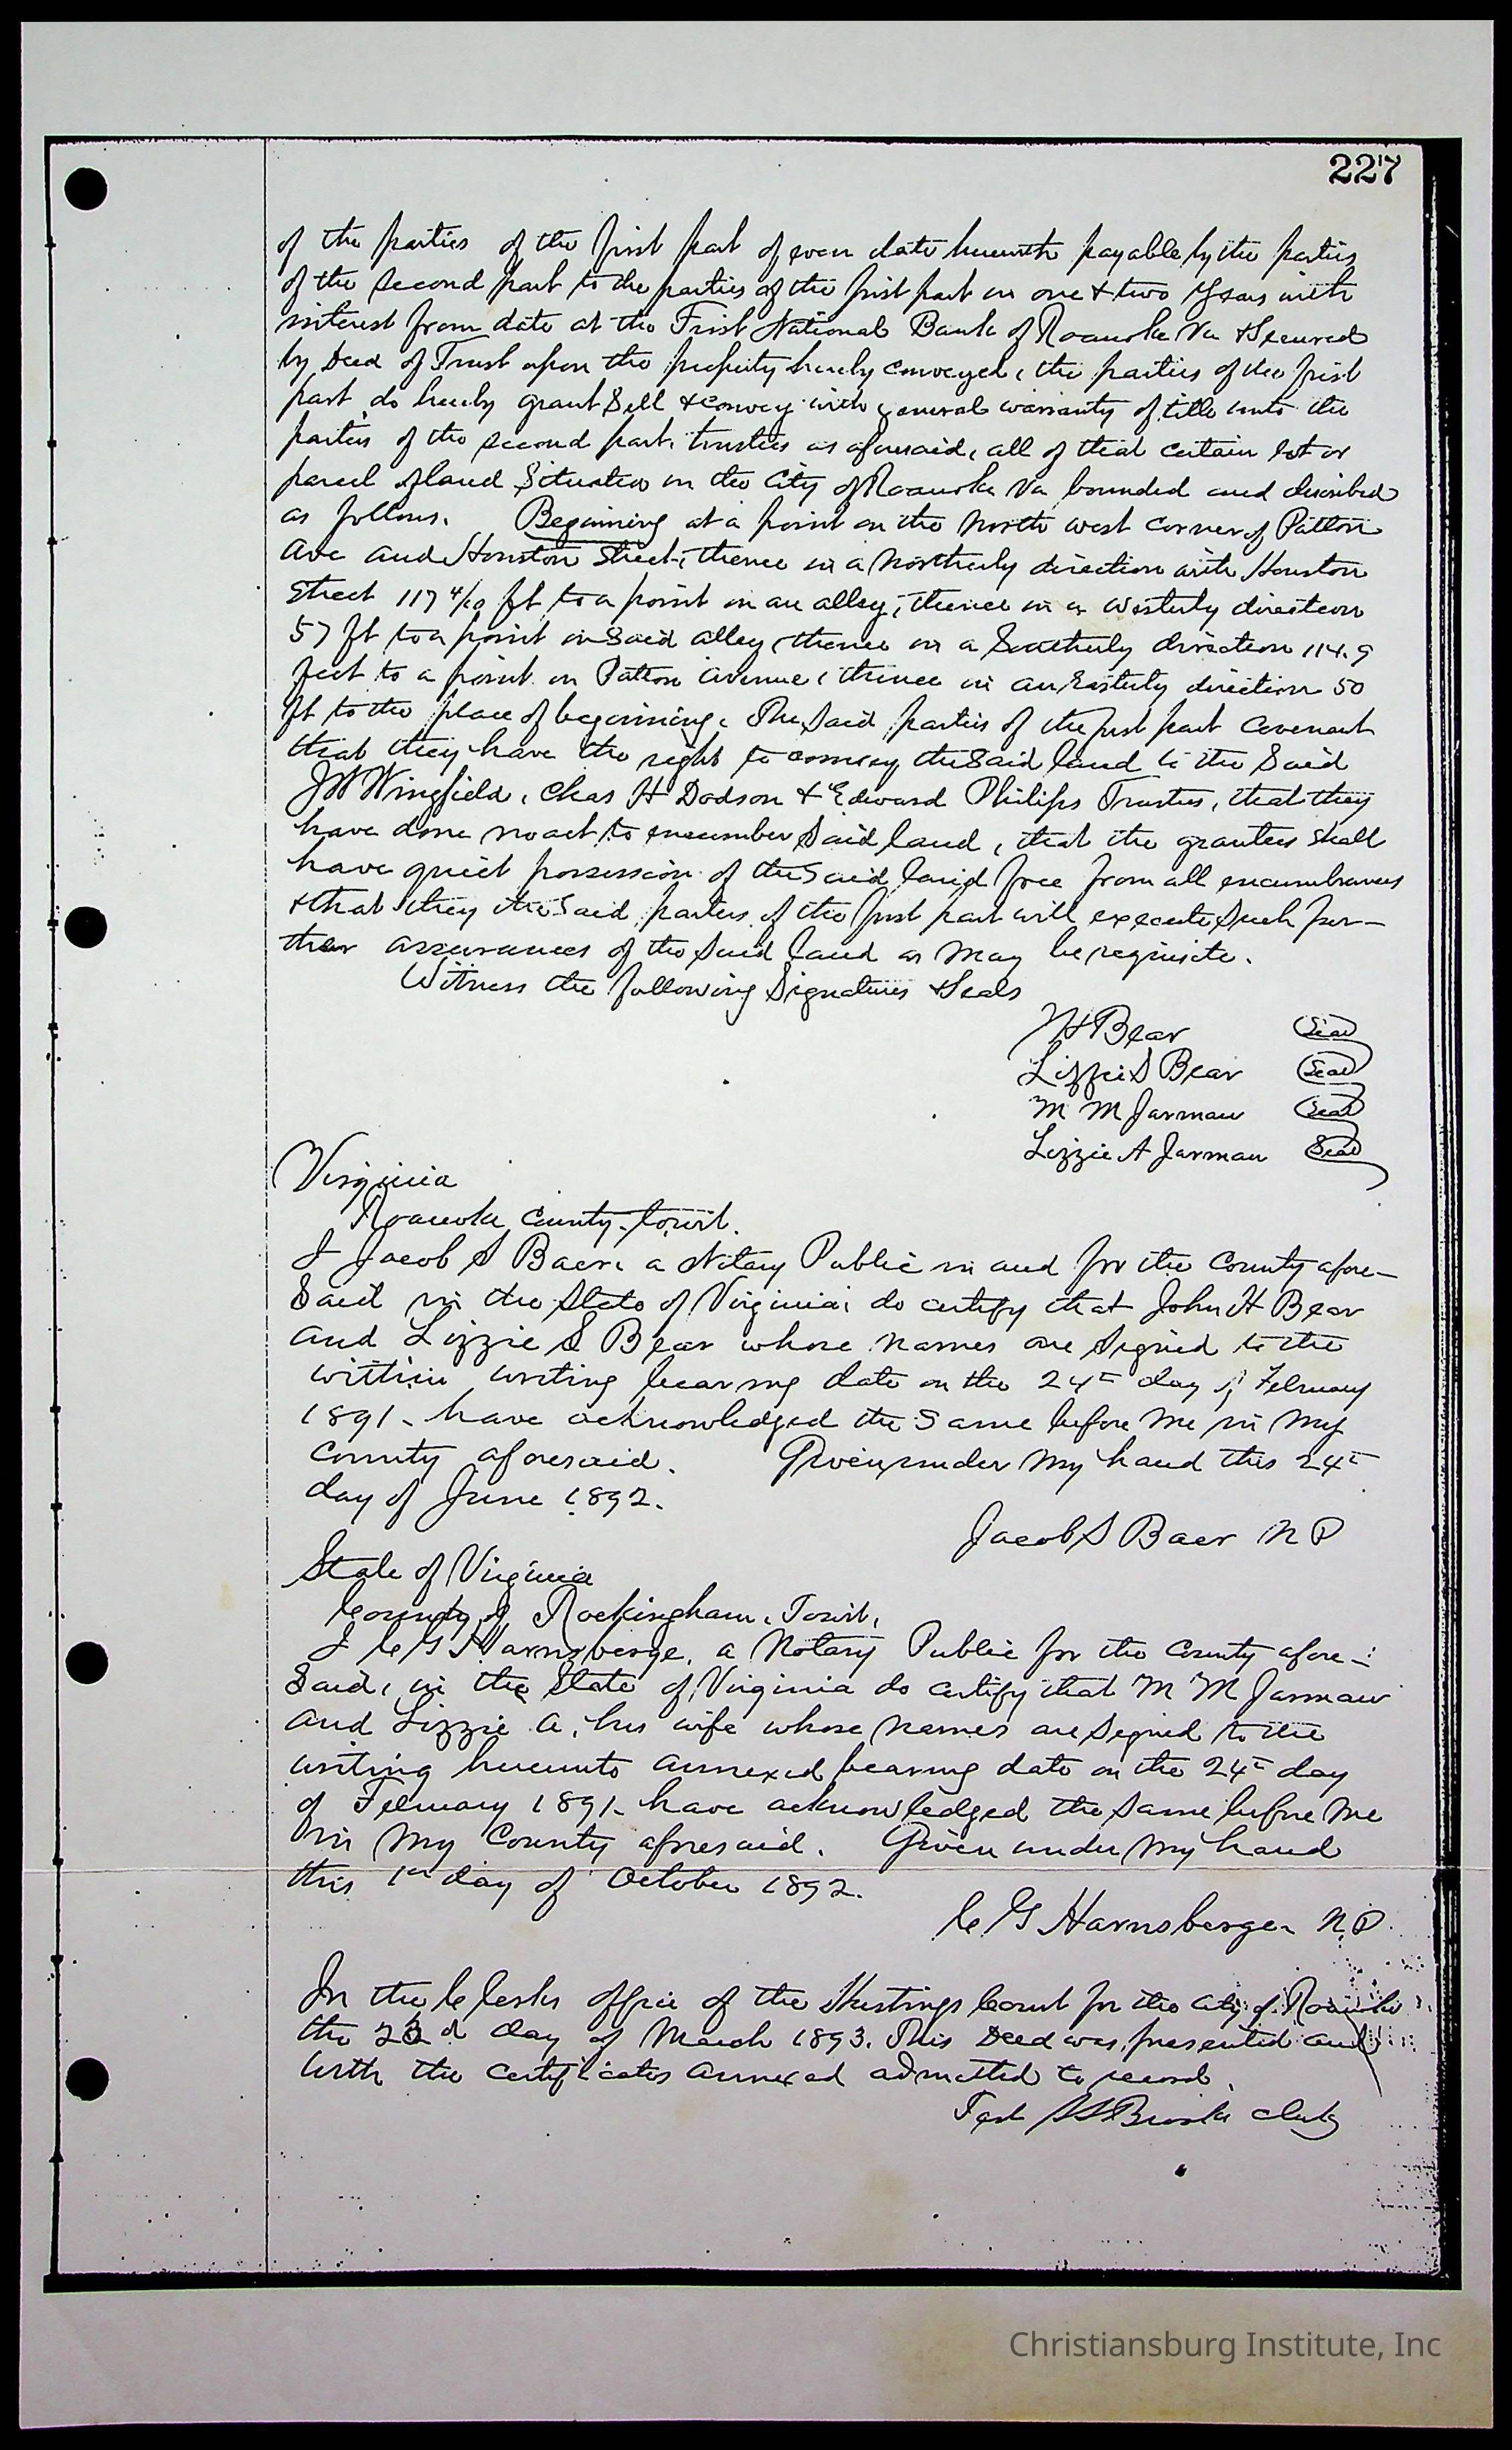 227
of the parties of the first part of even date herewith payable by the parties
of the second part to the parties of the first part in one & two years with
interest from date at the First National Bank of Roanoke Va & Secured
by Deed of Trust upon the property hereby conveyed, the parties of the first
part do hereby grant Sell & convey with general warranty of title unto the
parties of the second part, trustees as aforesaid, all of that certain lot or
parcel of land Situated in the City of Roanoke Va bounded and described
as follows. Beginning at a point on the North west corner of Patton
Ave and Houston Street, thence in a Northerly direction with Houston
Street 117 4/10 ft to a point on an alley, thence in a Westerly direction
57 ft to a point in Said alley, thence in a Southerly direction 114.9
feet to a point on Patton Avenue, thence in an Easterly direction 50
ft to the place of beginning. The Said parties of the first part covenant
that they have the right to convey the Said land to the Said
JW Wingfield, Chas H Dodson & Edward Philips Trustees, that they
have done no act to encumber Said land, that the grantees shall
have quiet possession of the Said land free from all encumbrances
& that they the Said parties of the first part will execute Such fur-
ther assurances of the Said land as may be requisite.
Witness the following Signatures & Seals
JH Bear Seal
Lizzie S Bear Seal
M M Jarman Seal
Lizzie A Jarman Seal
Virginia
Roanoke County, towit.
I Jacob S Baer, a Notary Public in and for the County afore-
Said in the State of Virginia, do certify that John H Bear
and Lizzie S Bear whose names are Signed to the
within writing bearing date on the 24th day of February
1891- have acknowledged the Same before me in my
county aforesaid. Given under my hand this 24th
day of June 1892.
Jacob S Baer N P
State of Virginia
County of Rockingham, Towit,
I C G Harnsberger, a Notary Public for the County afore-
Said, in the State of Virginia do certify that M M Jarman
and Lizzie A, his wife whose names are Signed to the
writing hereunto annexed bearing date on the 24th day
of February 1891- have acknowledged the Same before me
in my County aforesaid. Given under my hand
this 1st day of October 1892.
C G Harnsberger N.P.
In the Clerks office of the Hustings Court for the City of Roanoke
the 23d day of March 1893. This Deed was presented and
with the certificates annexed admitted to record.
Test SS Brooke Clerk
Christiansburg Institute, Inc